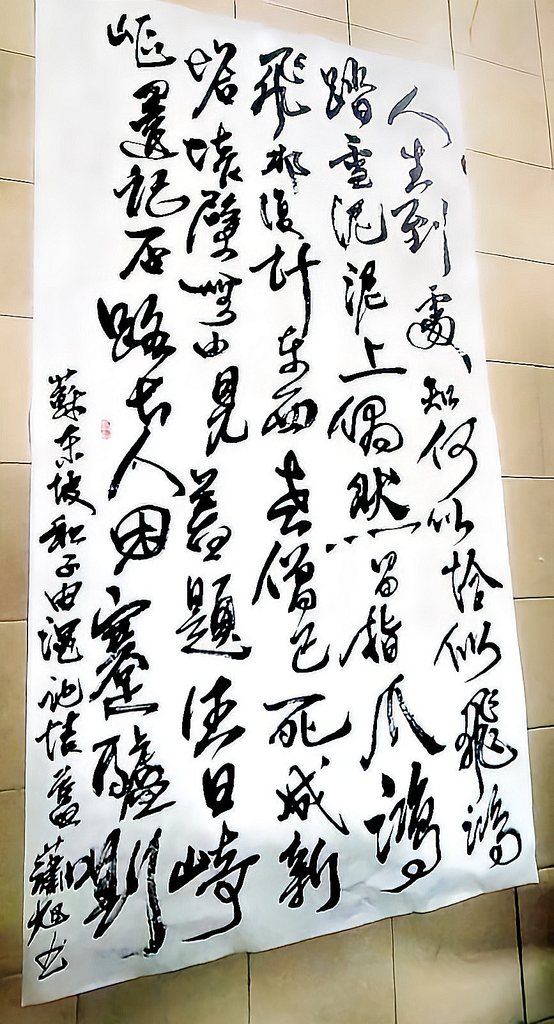 人生到處知何似恰似飛鴻
踏雪泥泥上偶然留指爪鴻
飛那復計東西老僧已死成新
塔壞壁無由見舊題往日崎
嶇還記否路長人困蹇驢嘶
蘇東坡和子由澠池懷舊 蕭旭书